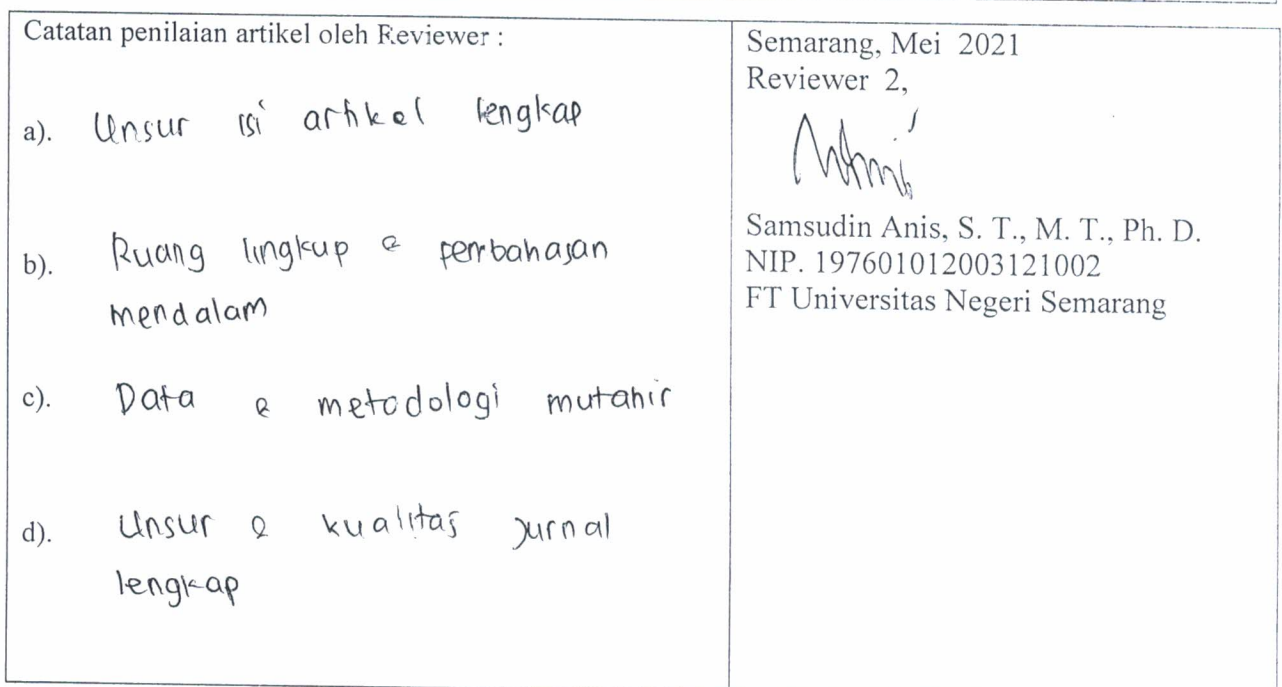 Catatan penilaian artikel oleh Reviewer :
a). Unsur isi artikel lengkap
b). Ruang lingkup & pembahasan
mendalam
c). Data & metodologi mutahir
d). Unsur & kualitas jurnal
lengkap
Semarang, Mei 2021
Reviewer 2,
Samsudin Anis, S. T., M. T., Ph. D.
NIP. 197601012003121002
FT Universitas Negeri Semarang